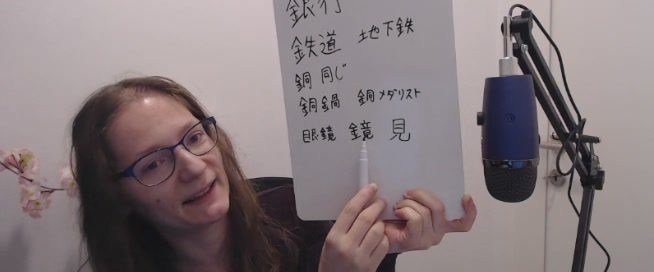 銀行
鉄道 地下鉄
銅 同じ
銅鍋 銅メダリスト
眼鏡 鏡 見